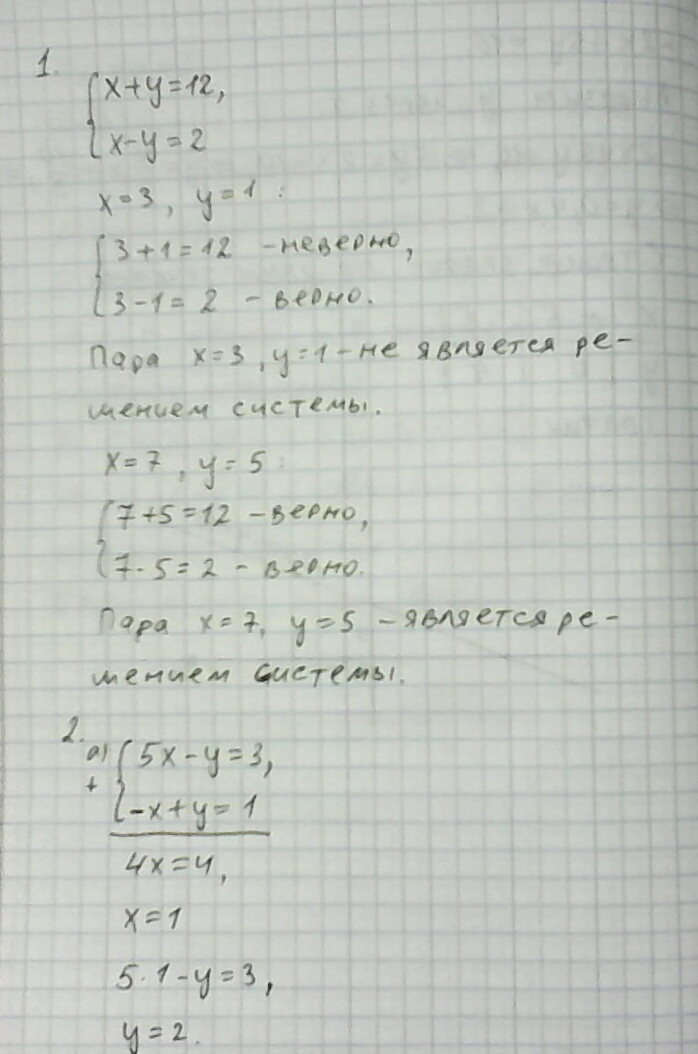 1.
{x+y=12,
{x-y=2
x=3, y=1:
{3+1=12 - неверно,
{3-1=2 - верно.
Пара x=3, y=1 - не является ре-
шением системы.
x=7, y=5:
{7+5=12 - верно,
{7-5=2 - верно.
Пара x=7, y=5 - является ре-
шением системы.
2.
а) {5x-y=3,
+ {-x+y=1
4x=4,
x=1
5·1-y=3,
y=2.